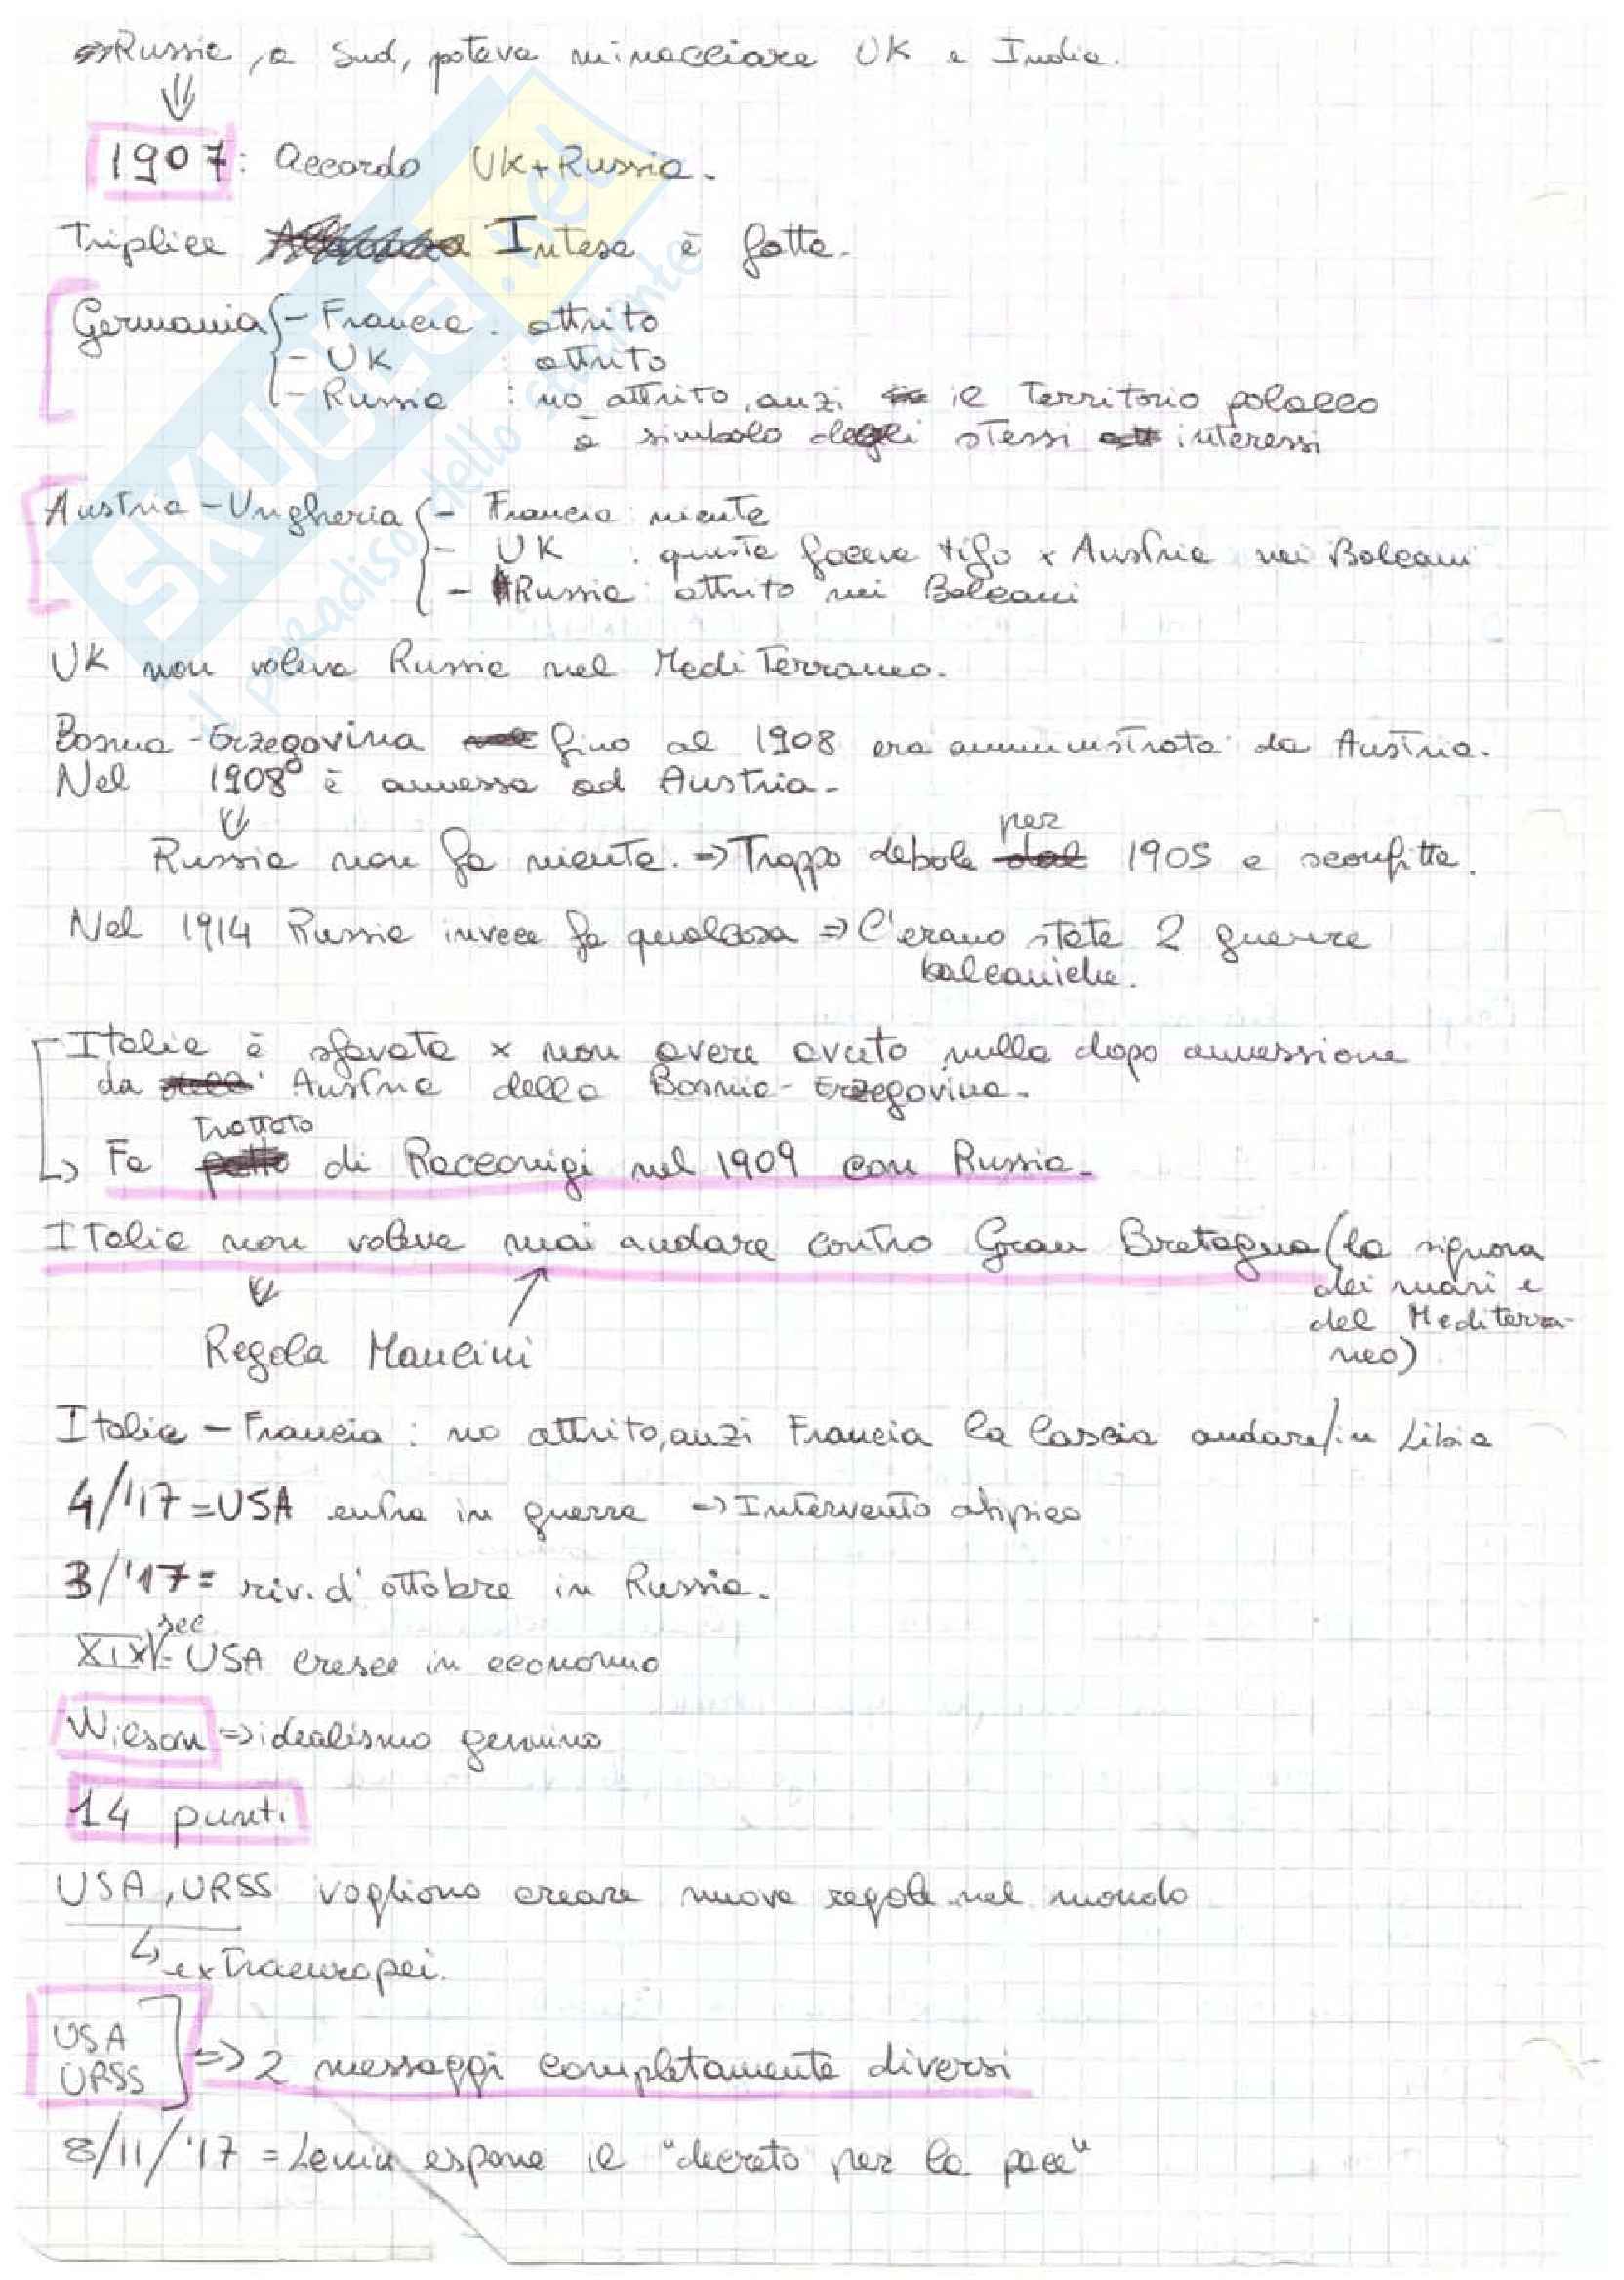 ⇒Russia, a Sud, poteva minacciare UK e India.
⇓
1907: Accordo UK+Russia.
Triplice Intesa è fatta.
Germania { - Francia : attrito
- UK : attrito
- Russia : no attrito, anzi il territorio polacco
è simbolo degli stessi interessi
Austria-Ungheria { - Francia : niente
- UK : questa faceva tifo x Austria nei Balcani
- Russia : attrito nei Balcani
UK non voleva Russia nel Mediterraneo.
Bosnia-Erzegovina fino al 1908 era amministrata da Austria.
Nel 1908 è annessa ad Austria.
⇓
per
Russia non fa niente. ⇒ Troppo debole dal 1905 e sconfitta.
Nel 1914 Russia invece fa qualcosa ⇒ C'erano state 2 guerre
balcaniche.
Italia è sfavata x non avere avuto nulla dopo annessione
da Austria della Bosnia-Erzegovina.
Trattato
↳ Fa patto di Racconigi nel 1909 con Russia.
Italia non voleva mai andare contro Gran Bretagna (la signora
dei mari e
del Mediterra-
neo)
⇓ ↗
Regola Mancini
Italia - Francia : no attrito, anzi Francia la lascia andare in Libia
4/'17 = USA entra in guerra ⇒ Intervento atipico
3/'17 = riv. d'ottobre in Russia.
sec
XIX = USA cresce in economia
Wilson ⇒ idealismo genuino
14 punti
USA, URSS vogliono creare nuove regole nel mondo
↳ extraeuropei.
USA
URSS ] ⇒ 2 messaggi completamente diversi
8/11/'17 = Lenin espone il "decreto per la pace"
SKUOLA.net
il paradiso dello studente